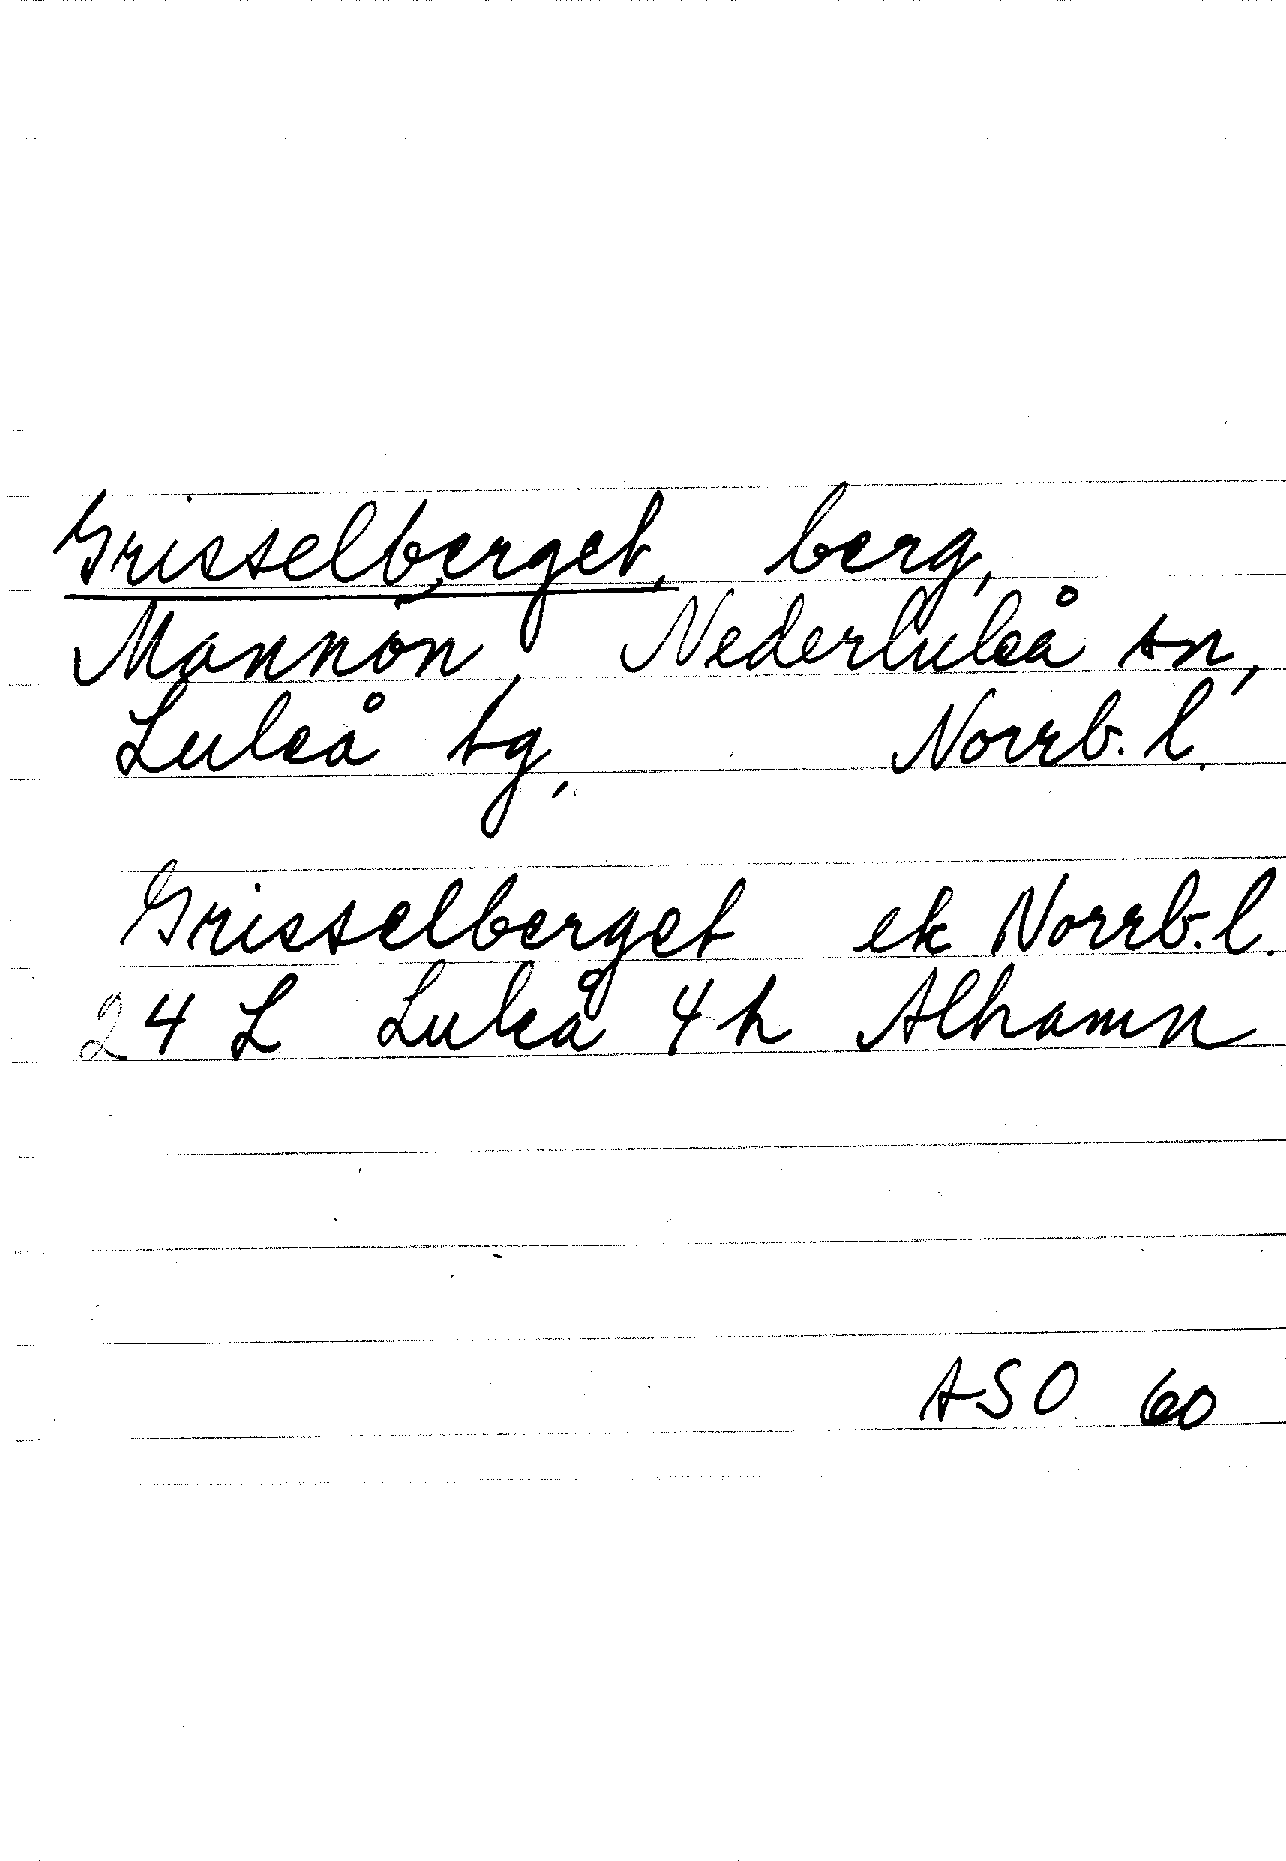 Grisselberget, berg,
Mannön, Nederluleå sn,
Luleå tg, Norrb. l.
Grisselberget ek Norrb. l.
24 L Luleå 4 h Alhamn
ASO 60